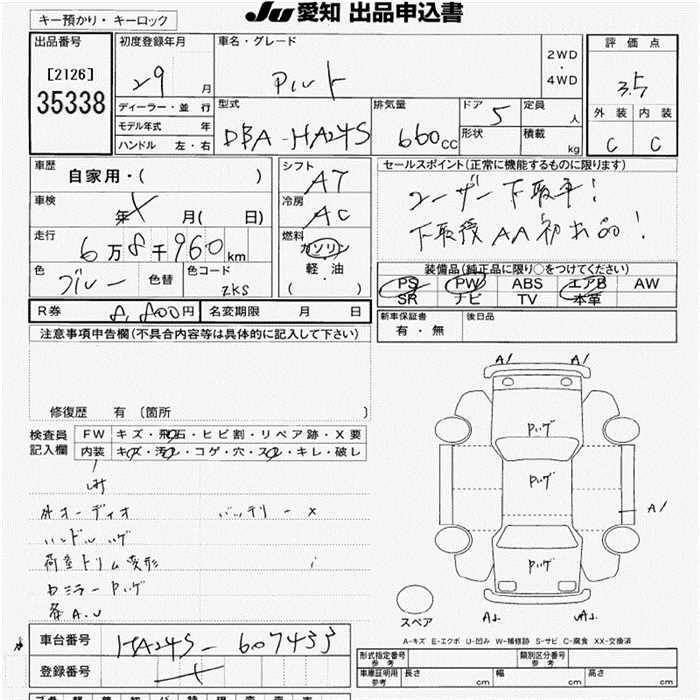 JU 愛知 出品申込書
キー預かり・キーロック
出品番号
[2126]
35338
初度登録年月
29 月
ディーラー・並 行
モデル年式 年
ハンドル 左・右
車名・グレード
2WD
・
4WD
型式
DBA-HA24S
排気量
660cc
ドア
5
形状
定員
人
積載
kg
評価点
3.5
外装 内装
C C
車歴
自家用・( )
車検
年 月( 日)
走行
6万8千960km
色
ブルー
色替
色コード
ZKS
シフト
AT
冷房
AC
燃料
ガソリン
・
軽・油
( )
セールスポイント(正常に機能するものに限ります)
ユーザー下取車!
下取後AA初出品!
装備品(純正品に限り○をつけてください)
PS PW ABS エアB AW
SR ナビ TV 本革
新車保証書
有・無
後日品
R券 8,800円
名変期限 月 日
注意事項申告欄(不具合内容等は具体的に記入して下さい)
修復歴 有 〔箇所 〕
検査員
記入欄
FW キズ・飛石・ヒビ割・リペア跡・X要
内装 キズ・汚れ・コゲ・穴・スレ・キレ・破レ
外オーディオ バッテリーX
ハンドルハゲ
荷室トリム変形
A1 A1
A1
スペア
A-キズ E-エクボ U-凹み W-補修跡 S-サビ C-腐食 XX-交換済
車台番号
HA24S-607433
登録番号
形式指定番号
参考
類別区分番号
参考
車庫証明用
参考
長さ cm
幅 cm
高さ cm